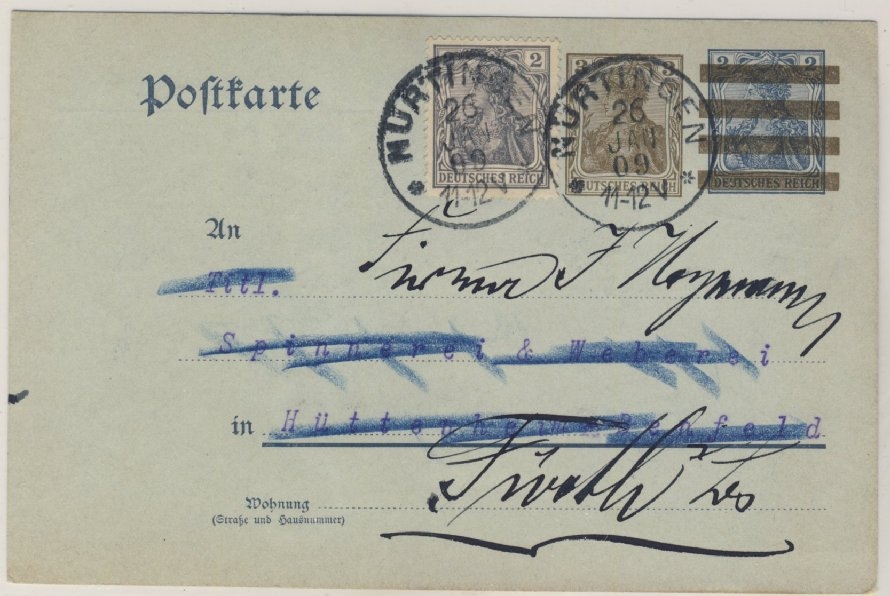 Postkarte
2
DEUTSCHES REICH
3 3
DEUTSCHES REICH
2 2
DEUTSCHES REICH
NÜRTINGEN
26
JAN
09
11-12 V
NÜRTINGEN
26
JAN
09
11-12 V
An
Titl.
Firma J
Spinnerei & Weberei
in Hüttenheim Benfeld
Wohnung
(Straße und Hausnummer)